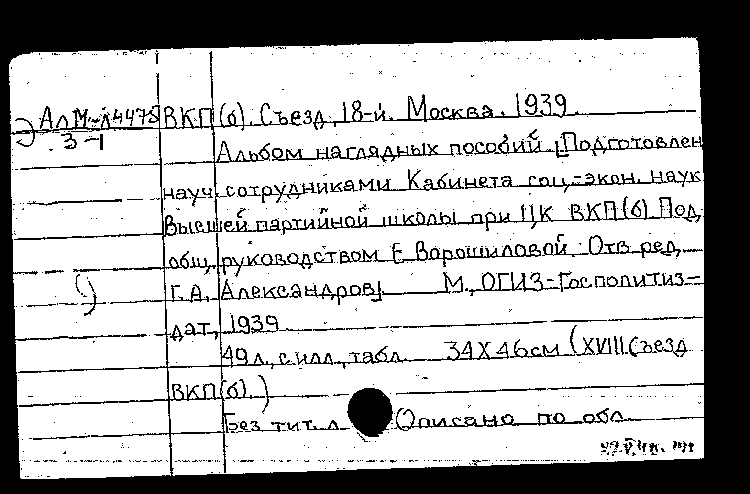 АлМ-л4475 ВКП(б). Съезд, 18-й. Москва. 1939.
3-1
Альбом наглядных пособий. [Подготовлен
науч. сотрудниками Кабинета соц.-экон. наук
Высшей партийной школы при ЦК ВКП(б) Под
общ. руководством Е. Ворошиловой. Отв. ред.
Г. А. Александров] М., ОГИЗ-Госполитиз-
дат, 1939
49 л., с илл., табл. 34X46см (XVIII Съезд
ВКП(б).)
Без тит. л. Описано по обл.